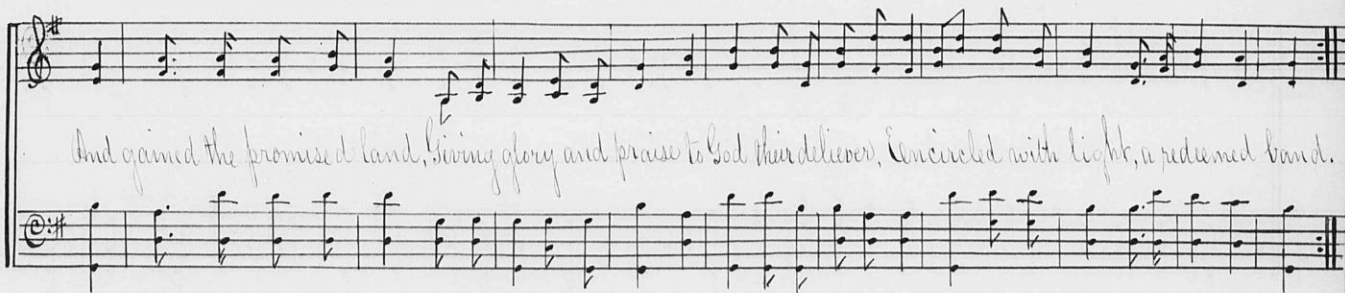 And gained the promised land, Giving glory and praise to God their deliever, Eencircled with light, a redeemed band.